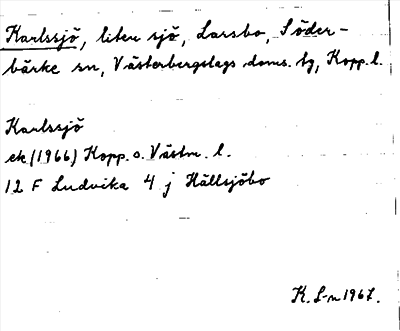 Karlssjö, liten sjö, Larsbo, Söder-
bärke sn, Västerbergslags doms. tg, Kopp. l.
Karlssjö
ek (1966) Kopp. o. Västm. l.
12 F Ludvika 4 j Hällsjöbo
K. L-n 1967.